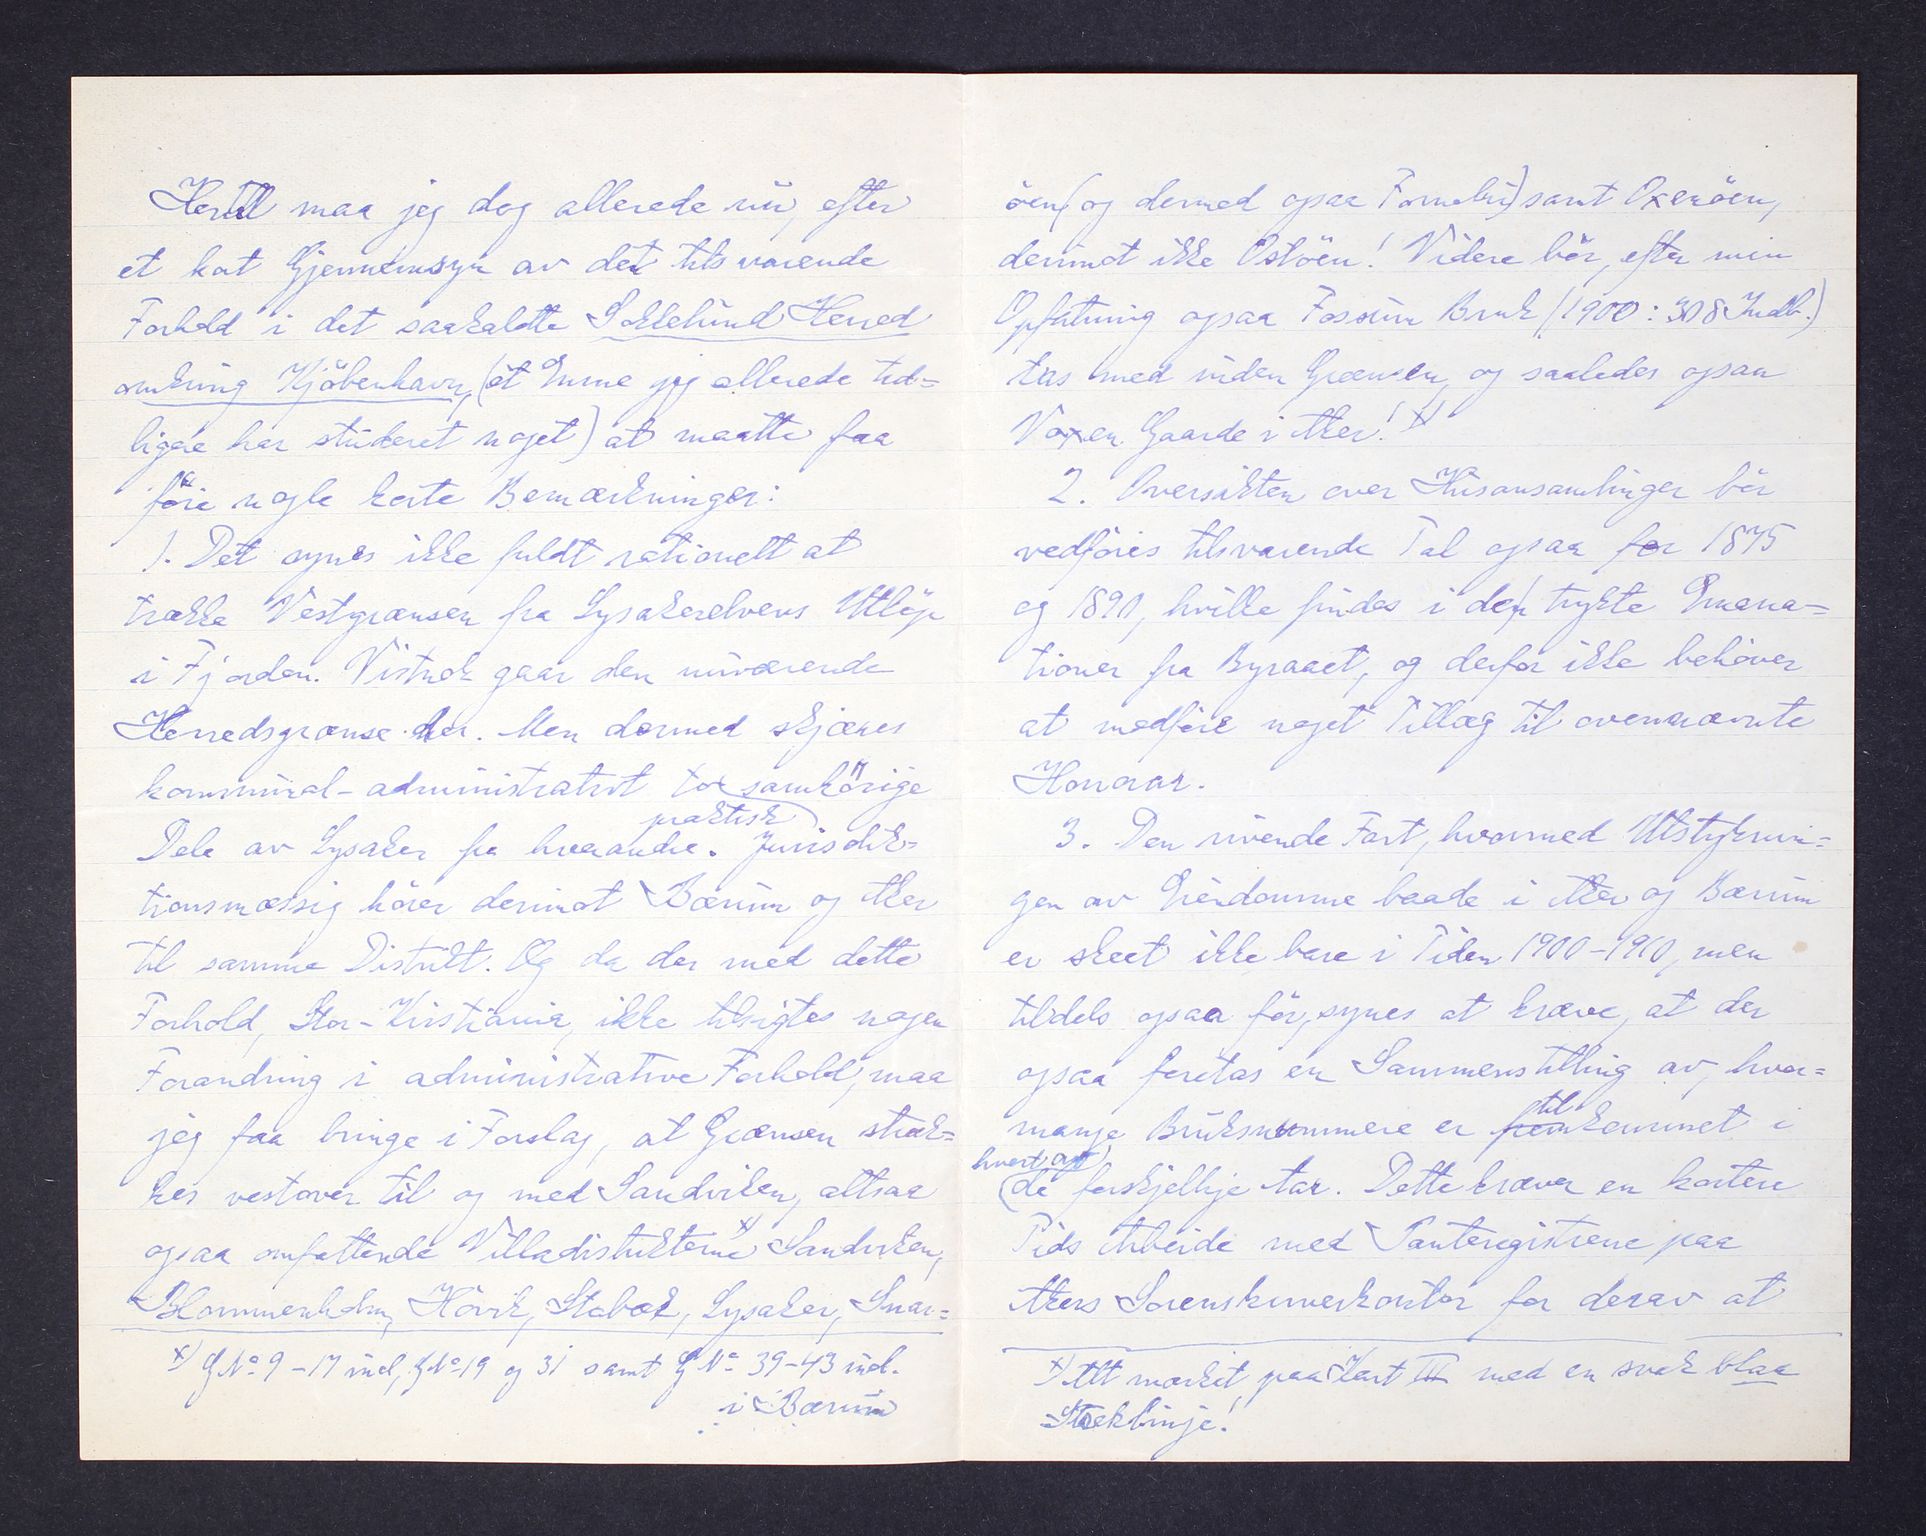 Hertil maa jeg dog allerede nu, efter
et kort Gjennemsyn av det tilsvarende
Forhold i det saakaldte Sokkelund Herred
omkring Kjöbenhavn, (et Emne jeg allerede tid=
ligere har studeret noget) at maatte faa
föie nogle korte Bemærkninger:
1. Det synes ikke fuldt rationelt at
trække Vestgrænsen fra Lysakerelvens Utlöp
i Fjorden. Vistnok gaar den nuværende
Herredsgrænse der. Men dermed skjæres
kommunal-administrativt to samhörige
Dele av Lysaker fra hverandre. Jurisdik=
praktisk
tionsmæssig hörer derimot Bærum og Aker
til samme Distrikt. Og da der med dette
Forhold, Stor-Kristiania, ikke tilsigtes nogen
Forandring i administrative Forhold, maa
jeg faa bringe i Forslag, at Grænsen stræk=
kes vestover til og med Sandviken, altsaa
ogsaa omfattende Villadistrikterne x) Sandviken,
Blommenholm, Hövik, Stabæk, Lysaker, Snar=
x) G No 9 - 17 incl, G No 19 og 31 samt G No 39-43 incl.
i Bærum
öen (og dermed ogsaa Fornebu) samt Oxenöen,
derimot ikke Ostöen! Videre bör, efter min
Opfatning ogsaa Fossum Bruk (1900: 308 Indb.)
tas med inden Grænsen, og saaledes ogsaa
Voxen Gaarde i Aker! x)
2. Oversikten over Husansamlinger bör
vedföies tilsvarende Tal ogsaa for 1875
og 1890, hvilke findes i de trykte Emana=
tioner fra Byraaet, og derfor ikke behöver
at medföre noget Tillæg til ovennævnte
Honorar.
3. Den rivende Fart, hvormed Utstyknin=
gen av Eiendomme baade i Aker og Bærum
er skeet ikke bare i Tiden 1900-1910, men
tildels ogsaa för, synes at kræve, at der
ogsaa foretas en Sammenstilling av, hvor=
mange Bruksnummere er fremkommet i
til
hvert av
de forskjellige Aar. Dette kræver en kortere
Tids Arbeide med Panteregistrene paa
Akers Sorenskriverkontor for derav at
x) Alt mærket paa Kart III med en svak blaa
Streklinje!